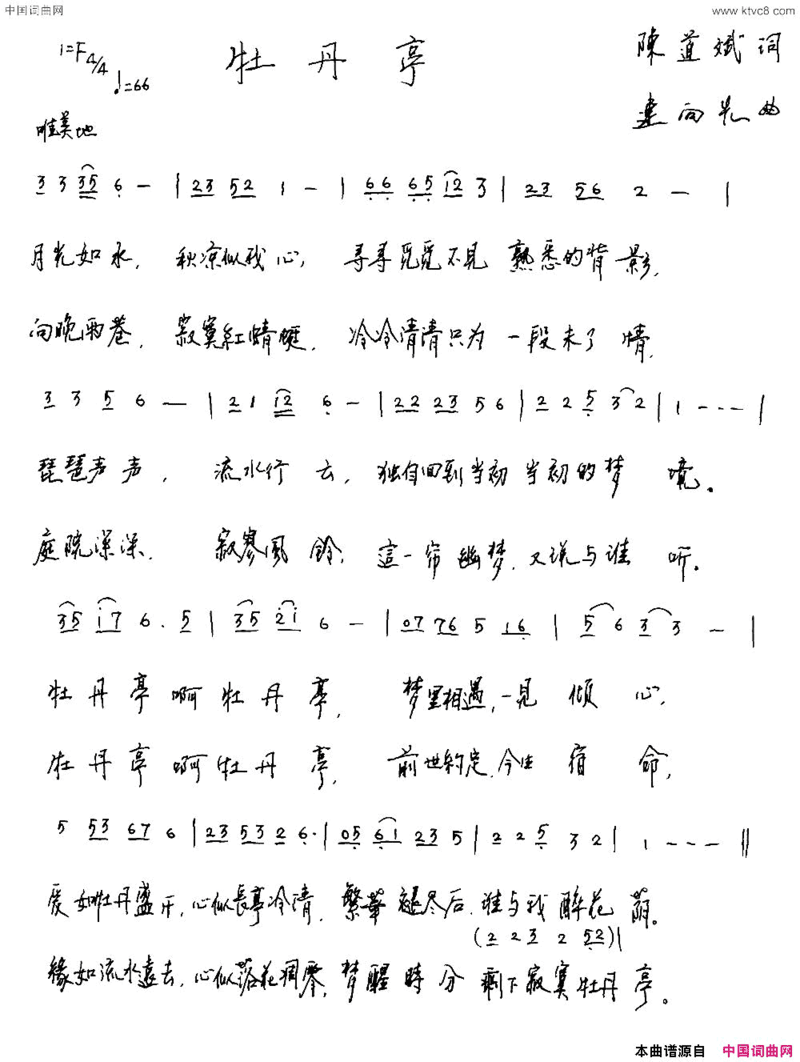 中国词曲网
www.ktvc8.com
1=F4/4 ♩=66
牡丹亭
陳道斌词
建向光曲
唯美地
3 3 35 6 — | 23 52 1 — | 66 65 12 3 | 23 56 2 — |
月光如水，秋凉似我心，寻寻觅觅不见 熟悉的背影，
向晚雨巷，寂寞紅蜻蜓，冷冷清清只为 一段未了情，
3 3 5 6 — | 2 1 12 6 — | 22 23 5 6 | 2 2 5 3 2 | 1 - - - |
琵琶声声，流水行云，独自回到当初 当初的梦境。
庭院深深，寂寥風鈴，這一帘幽梦，又说与谁听。
35 17 6. 5 | 35 21 6 — | 07 76 5 16 | 5 6 3 3 — |
牡丹亭啊牡丹亭，梦里相遇，一見傾心，
牡丹亭啊牡丹亭，前世約定，今生宿命，
5 53 67 6 | 23 53 2 6. | 05 61 23 5 | 2 2 5 3 2 | 1 - - - ||
爱如牡丹盛开，心似長亭冷清，繁華褪尽后，谁与我醉花荫。
(2 2 3 2 52) |
緣如流水遠去，心似落花凋零，梦醒時分 剩下寂寞牡丹亭。
本曲谱源自 中国词曲网